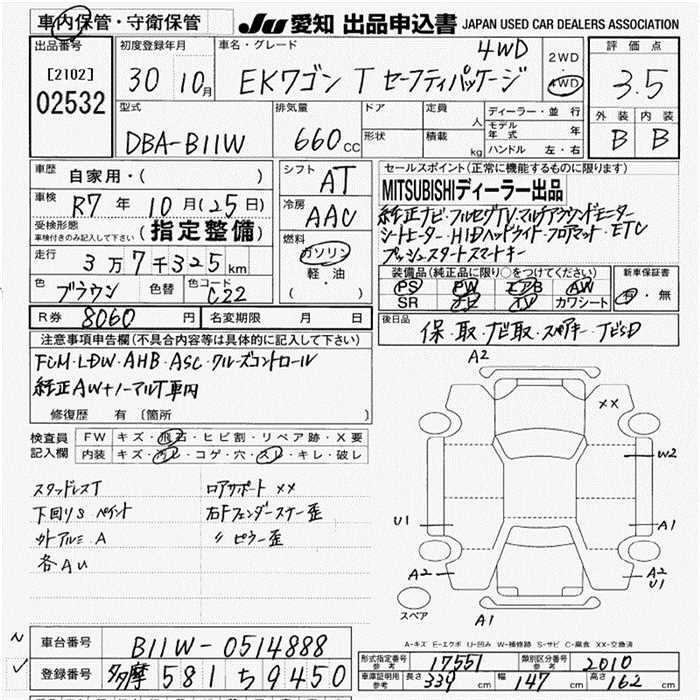 車内保管・守衛保管
JU 愛知 出品申込書 JAPAN USED CAR DEALERS ASSOCIATION
出品番号
[2102]
02532
初度登録年月
30 10月
車名・グレード
4WD
EKワゴン T セーフティパッケージ
2WD
4WD
評価点
3.5
外装 内装
B B
型式
DBA-B11W
排気量
660 cc
ドア
形状
定員 人
積載 kg
ディーラー・並行
モデル年式 年
ハンドル 左・右
車歴
自家用・( )
車検
R7 年 10 月 (25日)
受検形態
車検付きのみ記入して下さい
(指定整備)
走行
3万7千325 km
色
ブラウン
色替
色コード
C22
シフト
AT
冷房
AAC
燃料
ガソリン
・
軽・油
( )
セールスポイント(正常に機能するものに限ります)
MITSUBISHIディーラー出品
純正ナビ・フルセグTV・マルチアラウンドモニター
シートヒーター・HIDヘッドライト・フロアマット・ETC
プッシュスタートスマートキー
装備品(純正品に限り○をつけてください)
PS PW エアB AW
SR ナビ TV カワシート
新車保証書
有・無
R券 8060 円
名変期限 月 日
後日品
保・取・ナビ取・スペアキー・
注意事項申告欄(不具合内容等は具体的に記入して下さい)
FCM・LDW・AHB・ASC・クルーズコントロール
純正AW+ノーマルT車内
修復歴 有 〔箇所 〕
検査員記入欄
FW キズ・飛石・ヒビ割・リペア跡・X要
内装 キズ・汚レ・コゲ・穴・スレ・キレ・破レ
スタッドレスT
下回りS ペイント
外アルミ A
各AU
ロアサポート ××
右Fフェンダーステー歪
〃 ピラー歪
A2
××
W2
U1
A1
A2
A2
U1
A1
スペア
A-キズ E-エクボ U-凹み W-補修跡 S-サビ C-腐食 XX-交換済
車台番号
B11W-0514888
登録番号
多摩 581 ち 9450
形式指定番号
参考
17551
類別区分番号
参考
2010
車庫証明用
参考
長さ 339 cm
幅 147 cm
高さ 162 cm